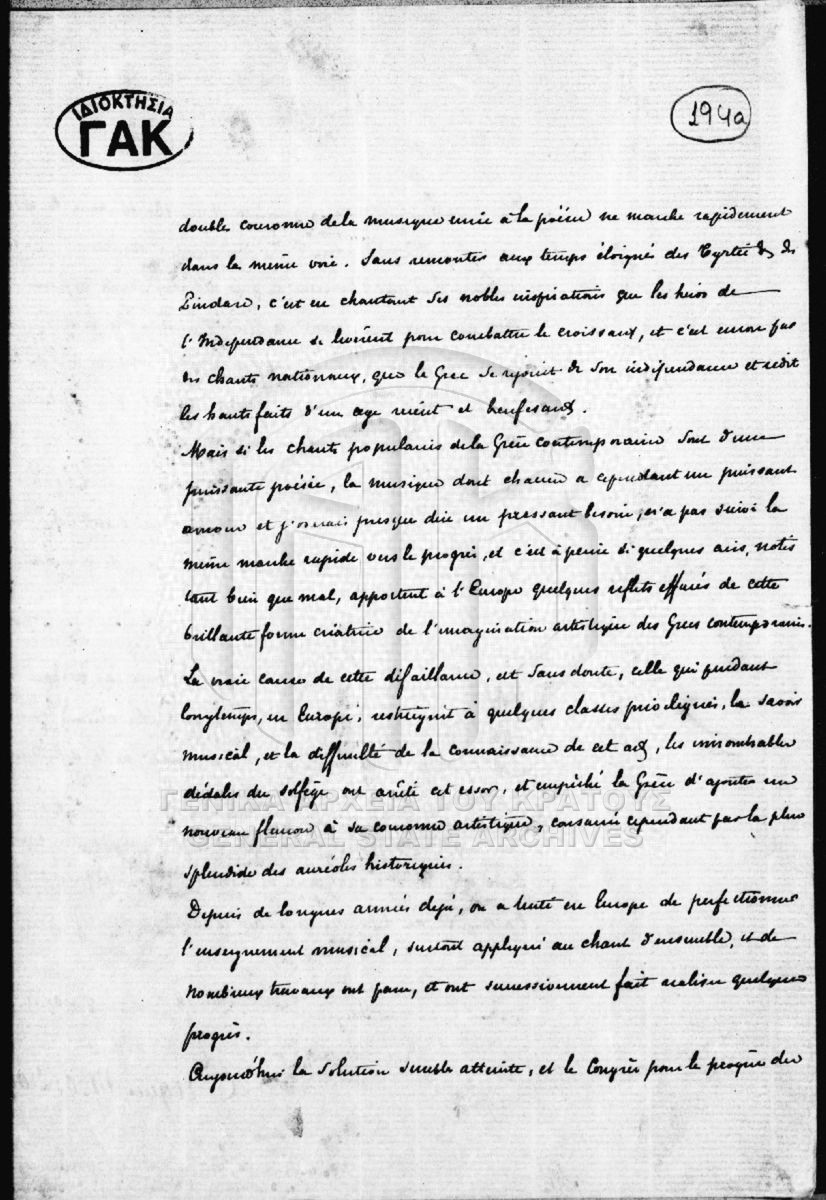 ΙΔΙΟΚΤΗΣΙΑ
ΓΑΚ
194a
double couronne de la musique unie à la poésie ne marche rapidement
dans la même voie. Sans remonter aux temps éloignés des Tyrtée & des
Pindare, c'est en chantant ses nobles inspirations que les héros de
l'Indépendance se levèrent pour combattre le croissant, et c'est encore par
des chants nationaux, que le Grec se réjouit de son indépendance et redit
les hauts faits d'un age récent et bienfesant.
Mais si les chants populaires de la Grèce contemporaine sont d'une
puissante poésie, la musique dont chacun a cependant un puissant
amour et j'oserais presque dire un pressant besoin, n'a pas suivi la
même marche rapide vers le progrès, et c'est à peine si quelques airs, notés
tant bien que mal, apportent à l'Europe quelques reflets effacés de cette
brillante forme créatrice de l'imagination artistique des Grecs contemporains.
La vraie cause de cette défaillance, est sans doute, celle qui pendant
longtemps, en Europe, restreignit à quelques classes privilégiées, le savoir
musical, et la difficulté de la connaissance de cet art, les innombrables
dédales du solfège ont arrêté cet essor, et empêché la Grèce d'ajouter un
nouveau fleuron à sa couronne artistique, consacrée cependant par la plus
splendide des auréoles historiques.
Depuis de longues années dejà, on a tenté en Europe de perfectionner
l'enseignement musical, surtout appliqué au chant d'ensemble, et de
nombreux travaux ont paru, et ont successivement fait réaliser quelques
progrès.
Aujourd'hui la solution semble atteinte, et le Congrès pour le progrès du
ΓΕΝΙΚΑ ΑΡΧΕΙΑ ΤΟΥ ΚΡΑΤΟΥΣ
GENERAL STATE ARCHIVES